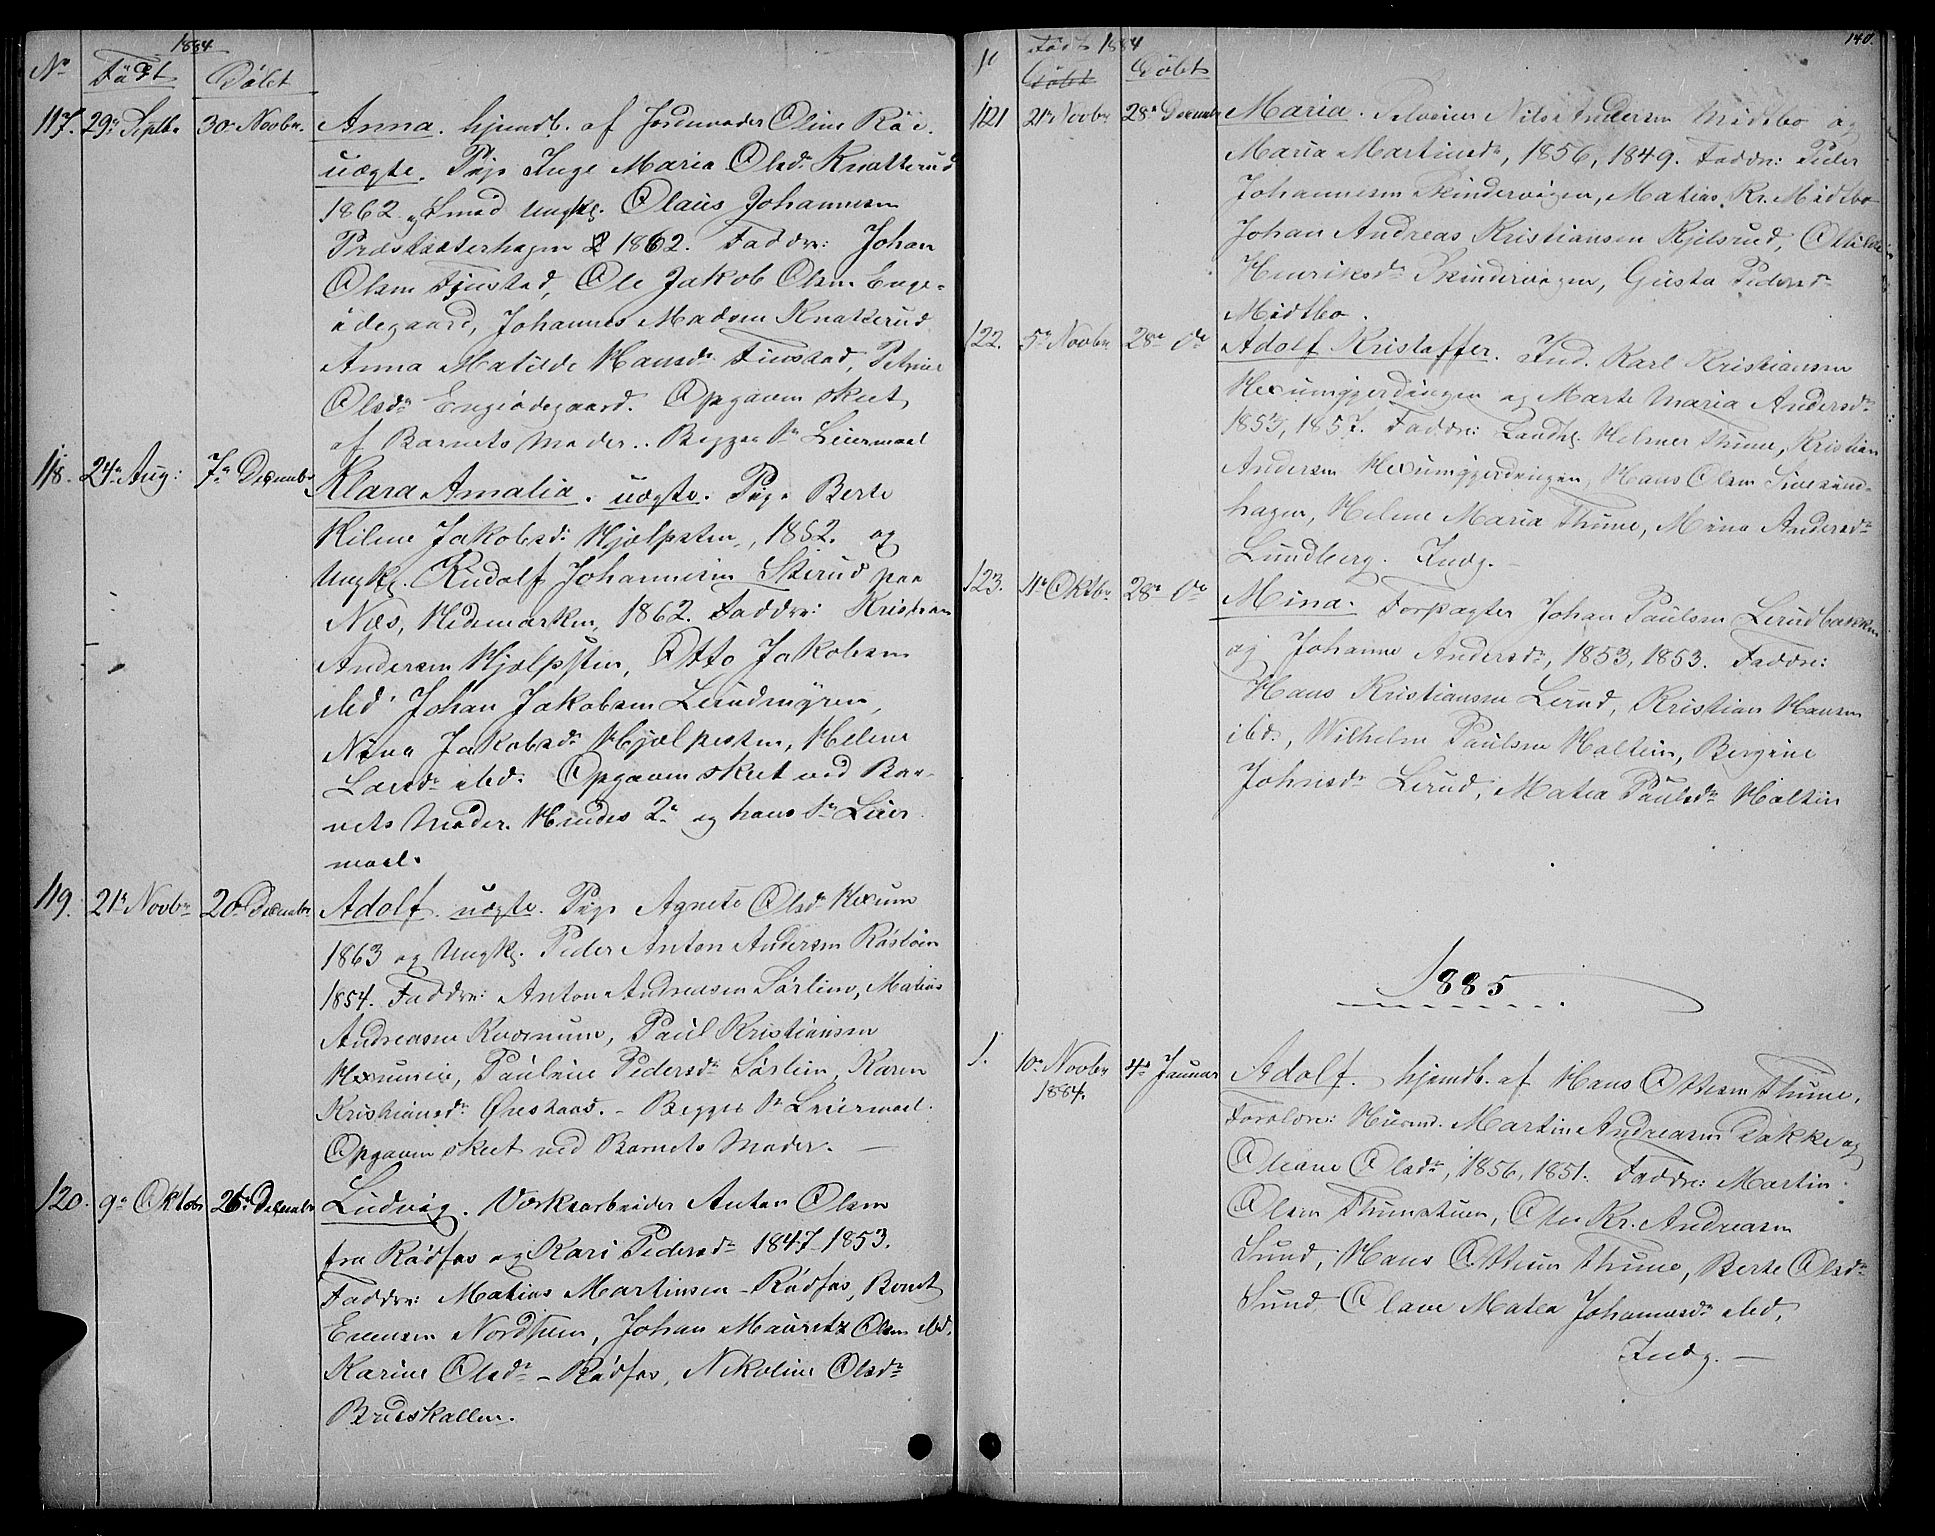 1884
No Født Døbt
117. 29de Septbr 30te Novbr. Anna. hjemdb. af Jordemoder Oline Røe.
uægte. Pige Inge Maria Olsdr Knatterud
1862 og Smed Ungk. Olaus Johannesen
Præstsæterhagen 1862. Faddre: Johan
Olsen Finstad, Ole Jakob Olsen Enge-
ødegaard, Johannes Madsen Knatterud
Anna Matilde Hansdr Finstad, Petrine
Olsdr Engeødegaard. Opgaven skeet
af Barnets Moder. Begges 1ste Leiermaal
118. 24de Aug: 7de Decembr Klara Amalia. uægte. Pige Berte
Helene Jakobsdr Hjelpsten, 1852. og
Ungk. Rudolf Johannesen Sterud paa
Næs, Hedemarken, 1862. Faddre: Kristian
Andersen Hjelpsten, Otto Jakobsen
ibd Johan Jakobsen Lerudmyren,
Nina Jakobsdr Hjelpesten, Helene
Larsdr ibd. Opgaven skeet ved Bar-
nets Moder. Hendes 2de og hans 1ste Leier
maal.
119. 21de Novbr 20de Decembr Adolf. uægte. Pige Agnete Olsdr Hexum
1863 og Ungk. Peder Anton Andersen Røstøen
1854. Faddre: Anton Andreasen Sørlien, Matias
Andreasen Kvernum, Paul Kristiansen
Hexumeie, Pauline Pedersdr Sørlien, Karen
Kristiansdr Ønstad. - Begges 1ste Leiermaal.
Opgaven skeet ved Barnets Moder. —
120. 9de Oktobr 26de Decembr Ludvig. Værksarbeider Anton Olsen
fra Rødfos og Kari Pedersdr 1847-1853.
Faddre: Matias Martinsen - Rødfos, Bernt
Evensen Nordlien, Johan Mauritz Olsen ibd,
Karine Olsdr - Rødfos, Nikoline Olsdr
Brueskallen.
140.
Født 1884
No Døbt Døbt
121 21de Novbr 28de Decembr Maria. Selveier Nils Andersen Midtbo og
Maria Martinsdr, 1856, 1849. Faddre: Peder
Johannesen Skindervigen, Matias Kr. Midtbo
Johan Andreas Kristiansen Kjelsrud, Otilde
Henriksdr Skindervigen, Gusta Pedersdr
Midtbo.
122. 5te Novbr 28de do Adolf Kristoffer. Ind. Karl Kristiansen
Hexumgjerdingen og Marte Maria Andersdr
1853, 1857. Faddre: Landh. Helmer Thune, Kristian
Andersen Hexumgjerdingen, Hans Olsen Sivesind-
hagen, Helene Maria Thune, Mina Andersdr
Lundberg. Indg. -
123. 4de Oktbr 28de do Mina. Forpagter Johan Paulsen Lerudbakken
og Johanne Andersdr, 1853, 1853. Faddre:
Hans Kristiansen Lerud, Kristian Hansen
ibd., Wilhelm Paulsen Holtein, Bergine
Johnsdr Lerud, Matea Paulsdr Holtein
1885
1. 10de Novbr 4de Januar Adolf. hjemdb. af Hans Ottesen Thune.
1884. Forældre: Husmd. Martin Andreasen Dokke og
Oleane Olsdr, 1856, 1851. Faddre: Martin
Olsen Thunestuen, Ole Kr. Andreasen
Sund, Hans Ottesen Thune, Berte Olsdr
Sund, Olave Matea Johannesdr ibd,
Indg. —